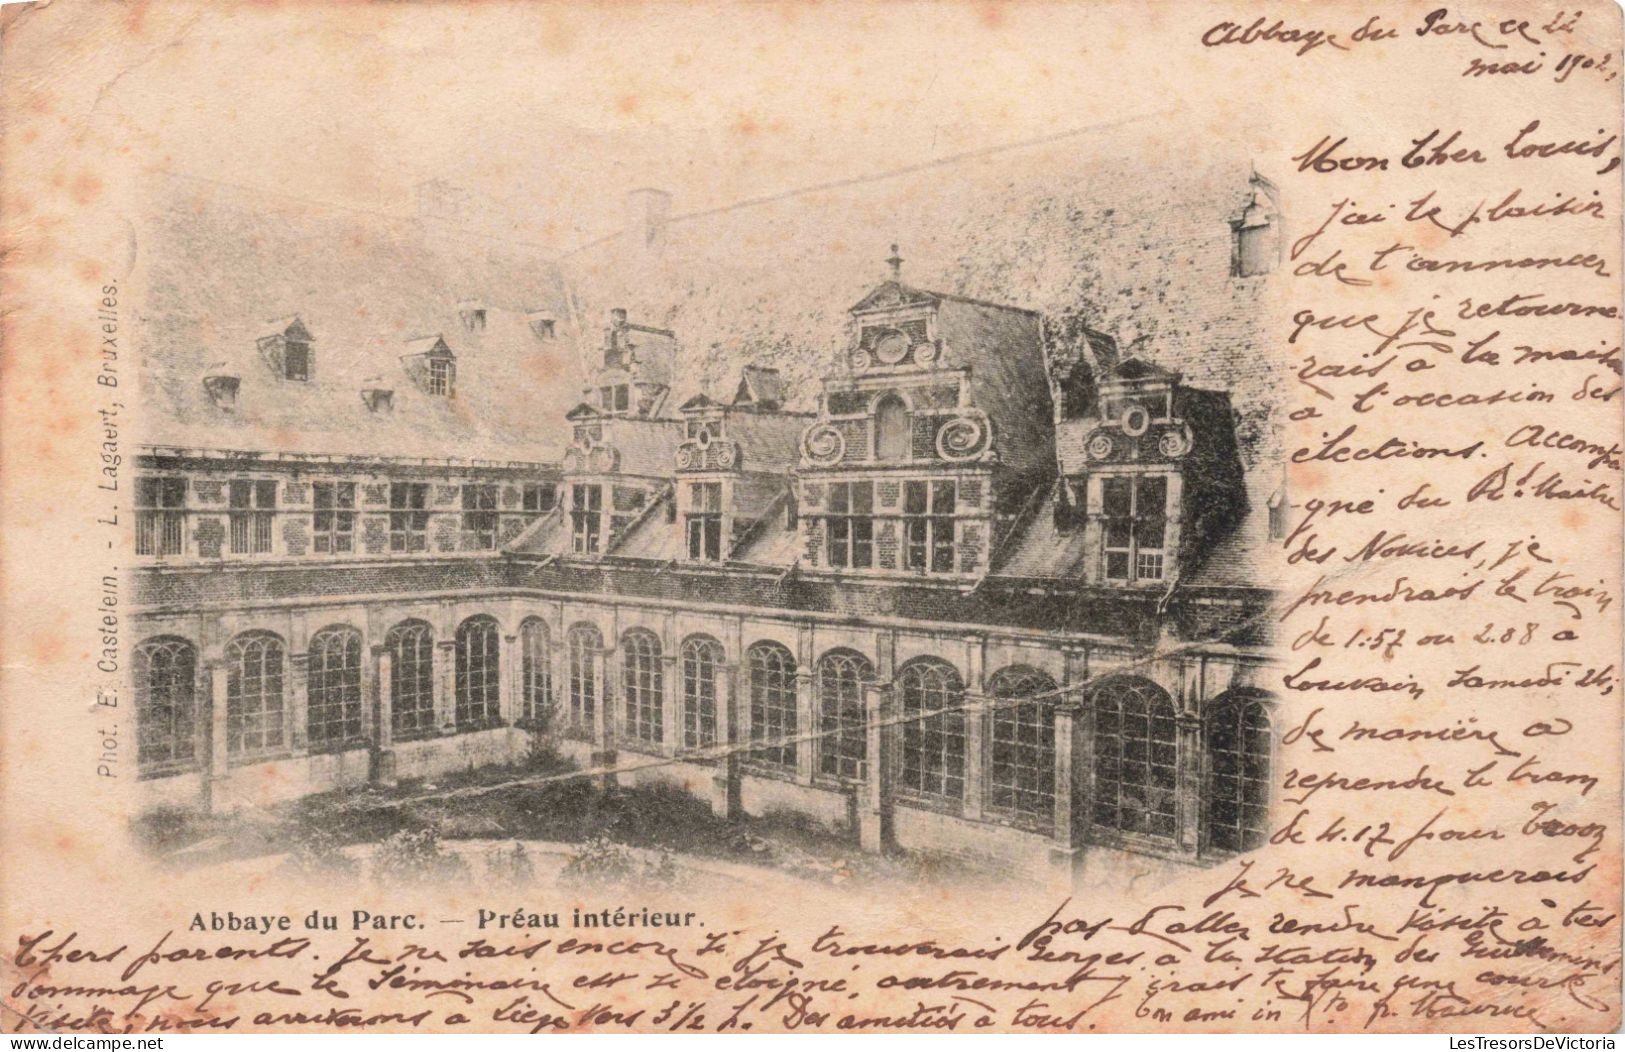 Abbaye du Parc ce 22
mai 1902,
Mon Cher Louis,
j'ai le plaisir
de t'annoncer
que je retourne-
rais à la maison
à l'occasion des
élections. Accompa-
gné du Rd. Maître
des Novices, je
prendrais le train
de 1.57 ou 2.08 à
Louvain samedi 24,
de manière à
reprendre le tram
de 4.17 pour Trooz
Je ne manquerais
pas d'aller rendre visite à tes
Chers parents. Je ne sais encore si je trouverais Georges à la station des Guillemins
dommage que le Séminaire est si éloigné, autrement j'irais te faire une courte
visite; nous arriverons à Liège vers 3 1/2 h. Des amitiés à tous. Ton ami in Xto. fr. Maurice.
Phot. E. Castelein. - L. Lagaert, Bruxelles.
Abbaye du Parc. — Préau intérieur.
LesTresorsDeVictoria